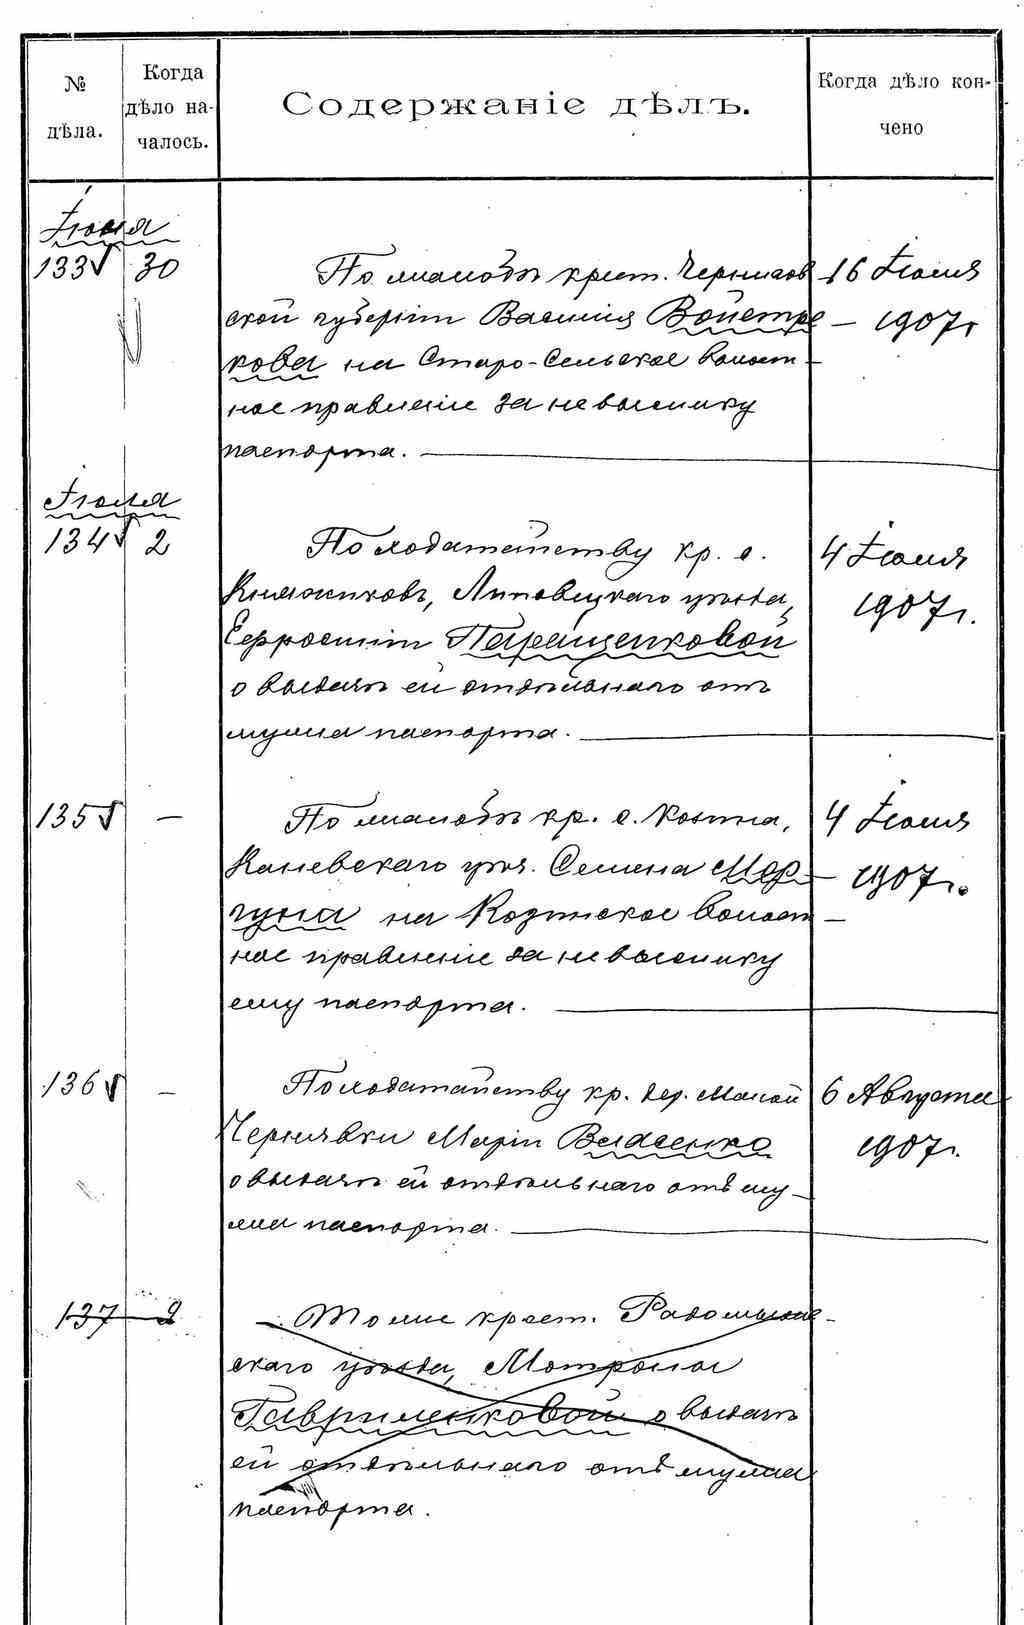 № дѣла.
Когда дѣло на-
чалось.
Содержаніе дѣлъ.
Когда дѣло кон-
чено
Іюня
133 30 По жалобѣ крест. Чернигов 16 Іюля
ской губерніи Василія Войстре 1907г
кова на Старо-Сельское волост-
ное правленіе за невысылку
паспорта.
Іюля
134 2 По ходатайству кр. с. 4 Іюля
Княжиковъ, Липовецкаго уѣзда, 1907г.
Евфросиніи Паращенковой
о выдачѣ ей отдѣльнаго отъ
мужа паспорта.
135 — По жалобѣ кр. с. Козина, 4 Іюля
Каневскаго уѣз. Семена Мор- 1907г.
гуна на Козинское волост-
ное правленіе за невысылку
ему паспорта.
136 — По ходатайству кр. дер. Малой 6 Августа
Чернявки Маріи Власенко 1907г.
о выдачѣ ей отдѣльнаго отъ му-
жа паспорта.
137 2 Тоже крест. Радомысль-
скаго уѣзда, Мотроны
Гавриленковой о выдачѣ
ей отдѣльнаго отъ мужа
паспорта.